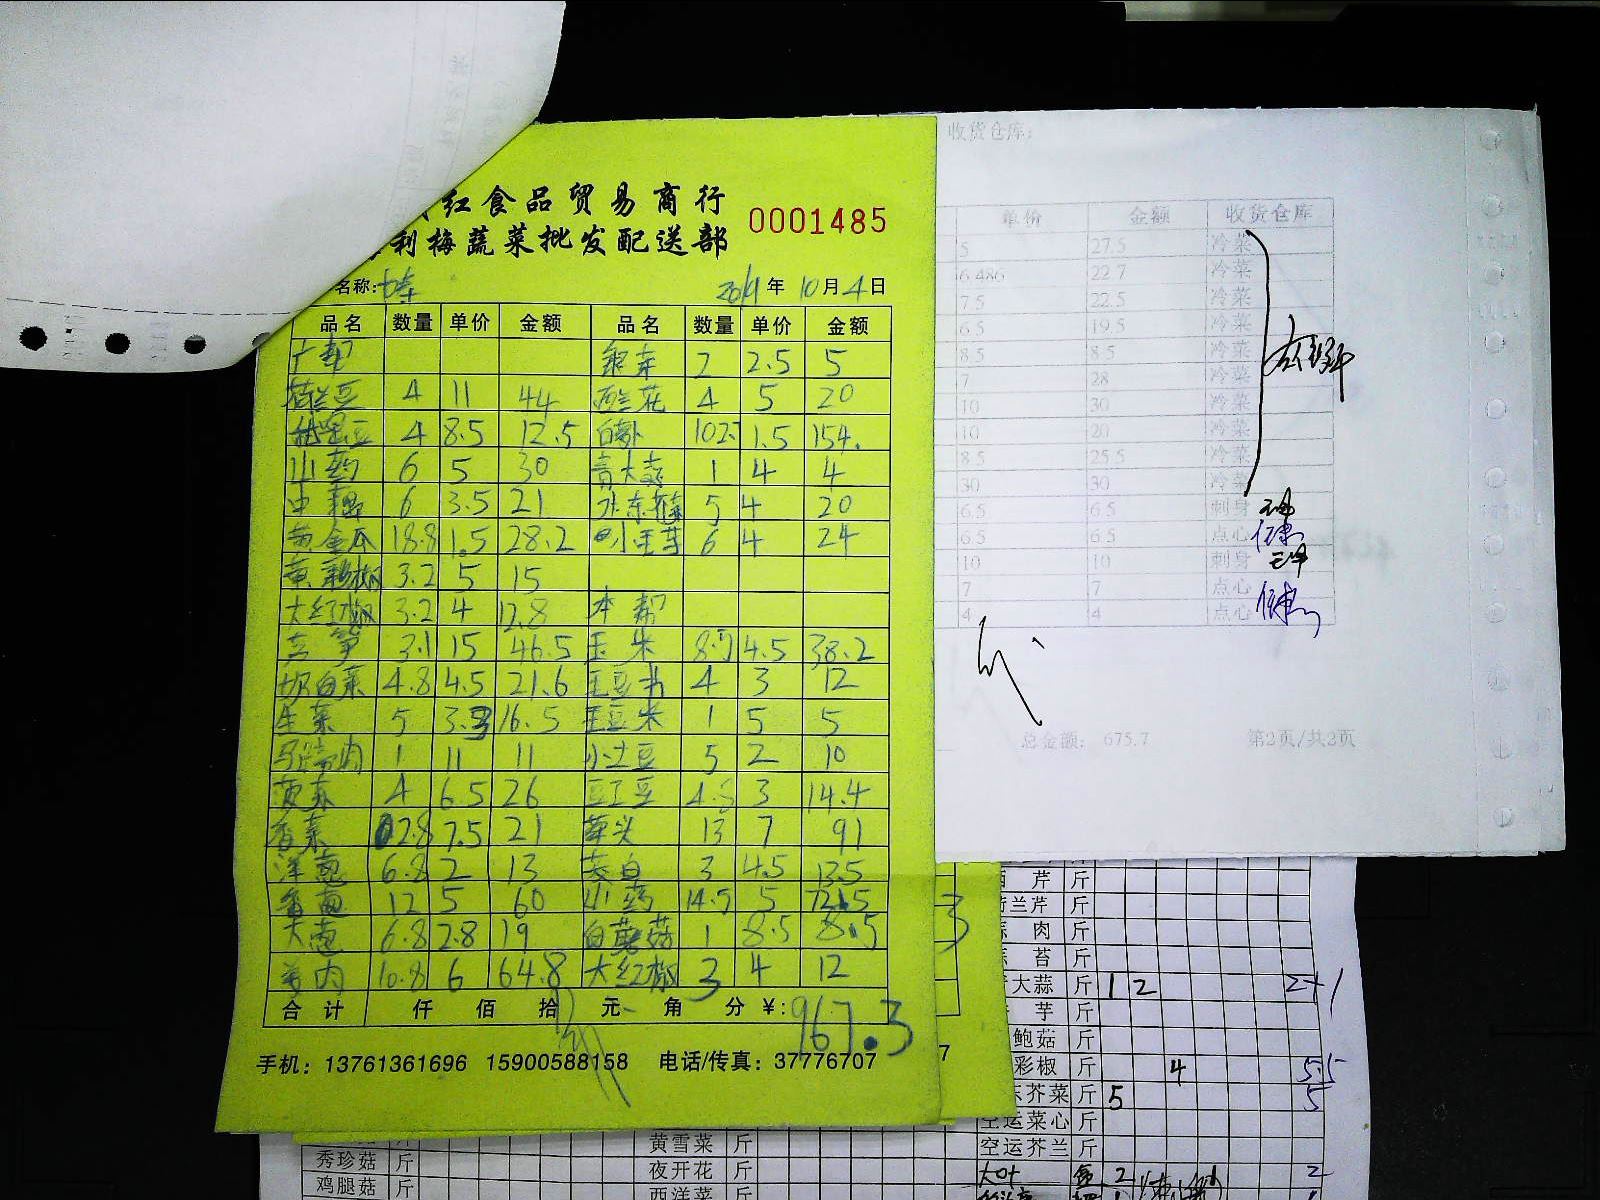 红食品贸易商行
利梅蔬菜批发配送部
0001485
名称:
2019年10月4日
品名 数量 单价 金额 品名 数量 单价 金额
2 2.5 5
荷兰豆 4 11 44 西兰花 4 5 20
4 8.5 12.5 白萝卜 102.7 1.5 154.
山药 6 5 30 青大蒜 1 4 4
6 3.5 21 5 4 20
黄金瓜 18.8 1.5 28.2 6 4 24
黄彩椒 3.2 5 15
大红椒 3.2 4 12.8 本帮
3.1 15 46.5 玉米 8.5 4.5 38.2
奶白菜 4.8 4.5 21.6 4 3 12
生菜 5 3.3 16.5 1 5 5
马蹄肉 1 11 11 小土豆 5 2 10
4 6.5 26 豇豆 4.8 3 14.4
香菜 2.8 7.5 21 草头 13 7 91
洋葱 6.8 2 13 茭白 3 4.5 13.5
香葱 12 5 60 山药 14.5 5 72.5
大葱 6.8 2.8 19 白蘑菇 1 8.5 8.5
姜肉 10.8 6 64.8 大红椒 3 4 12
合计 仟 佰 拾 元 角 分 ¥: 967.3
手机: 13761361696 15900588158 电话/传真: 37776707
收货仓库:
单价 金额 收货仓库
5 27.5 冷菜
6.486 22.7 冷菜
7.5 22.5 冷菜
6.5 19.5 冷菜
8.5 8.5 冷菜
7 28 冷菜
10 30 冷菜
10 20 冷菜
8.5 25.5 冷菜
30 30 冷菜
6.5 6.5 刺身
6.5 6.5 点心
10 10 刺身
7 7 点心
4 4 点心
总金额: 675.7 第2页/共2页
3
7
西芹 斤
荷兰芹 斤
肉 斤
苔 斤
大蒜 斤 1 2 2+1
芋 斤
鲍菇 斤
彩椒 斤 4 5.5
芥菜 斤 5 5
空运菜心 斤
空运芥兰 斤
大叶 盒 2 2
黄雪菜 斤
夜开花 斤
西洋菜
秀珍菇 斤
鸡腿菇 斤